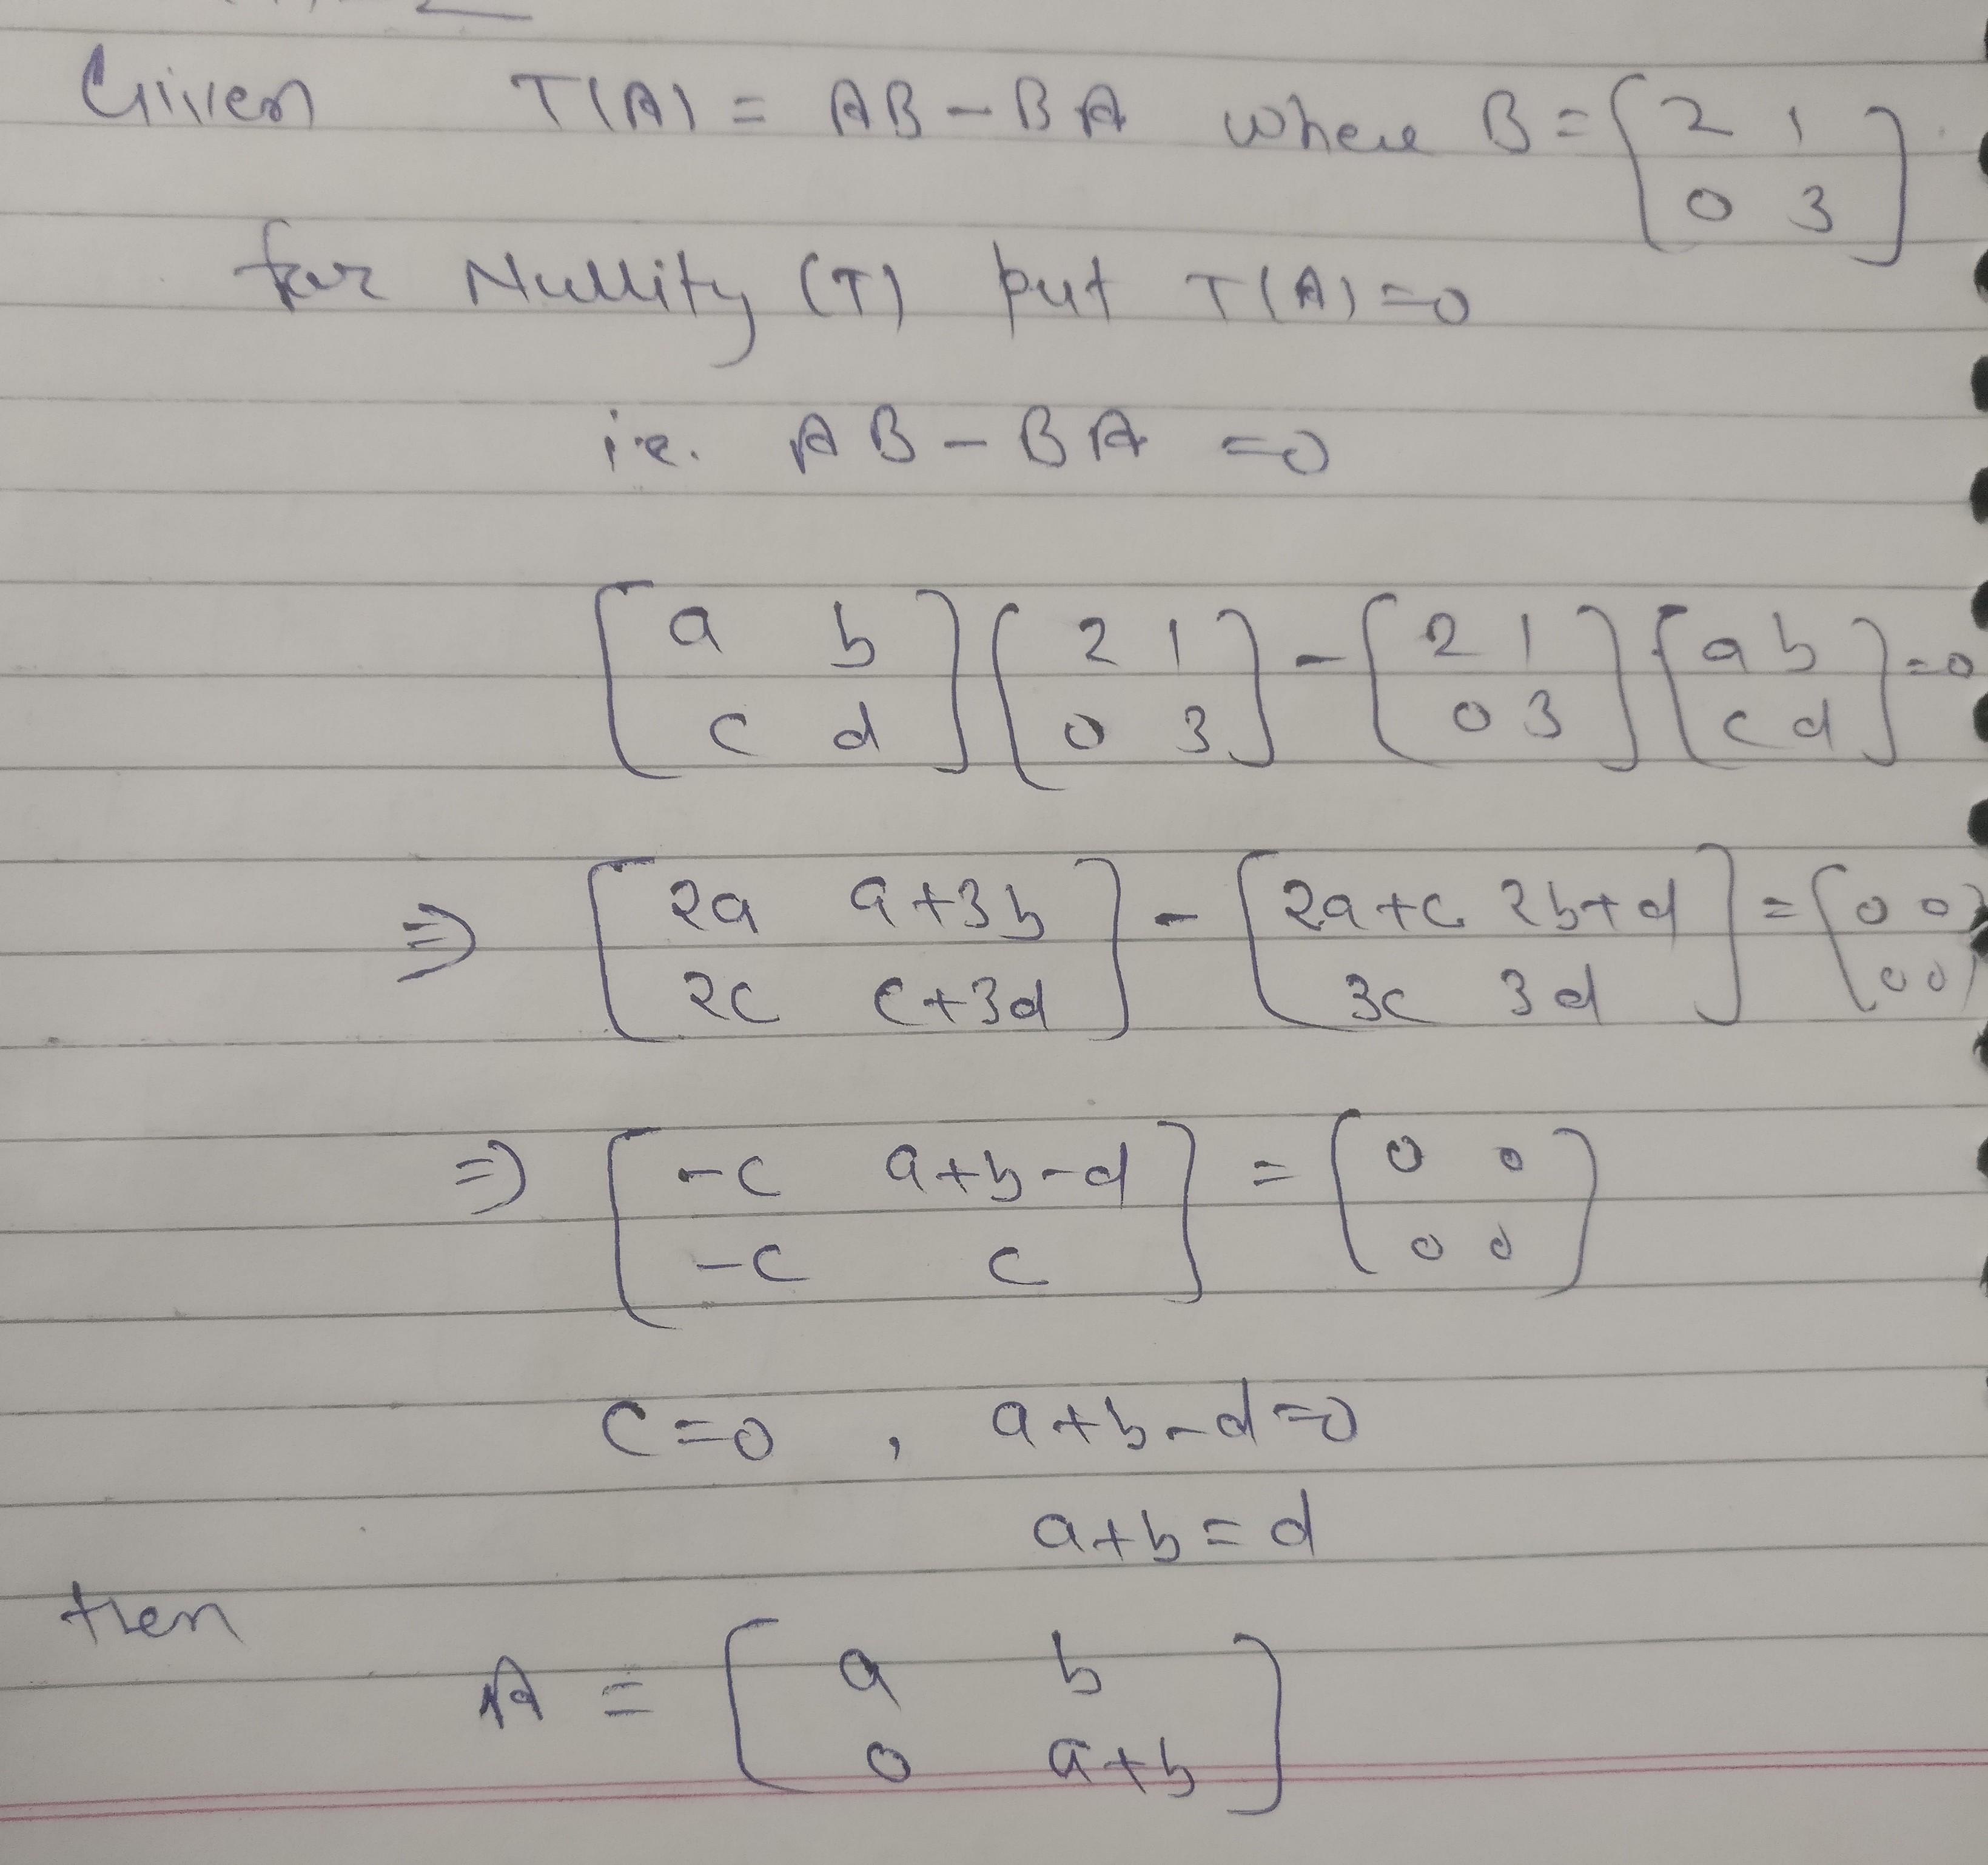 Given T(A) = AB - BA where B = [2 1; 0 3]
for Nullity (T) put T(A) = 0
i.e. AB - BA = 0
[a b; c d] [2 1; 0 3] - [2 1; 0 3] [a b; c d] = 0
⇒ [2a a+3b; 2c c+3d] - [2a+c 2b+d; 3c 3d] = [0 0; 0 0]
⇒ [-c a+b-d; -c c] = [0 0; 0 0]
c = 0 , a+b-d = 0
a+b = d
then
A = [a b; 0 a+b]